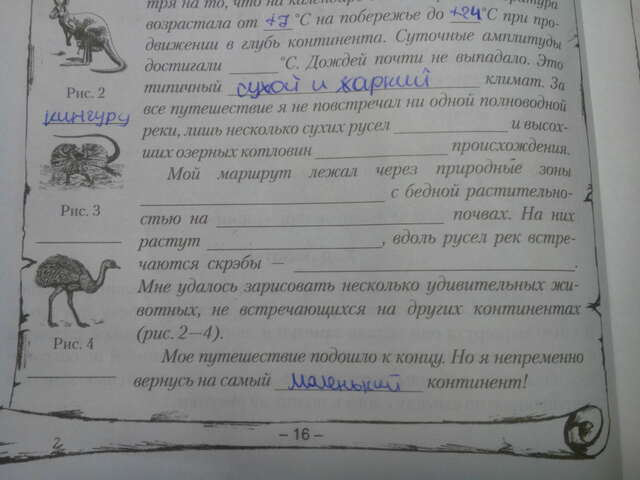 тря на то, что на календаре
возрастала от +7 °С на побережье до +24 °С при про-
движении в глубь континента. Суточные амплитуды
достигали ______ °С. Дождей почти не выпадало. Это
типичный сухой и жаркий климат. За
все путешествие я не повстречал ни одной полноводной
реки, лишь несколько сухих русел ______ и высох-
ших озерных котловин ______ происхождения.
Мой маршрут лежал через природные зоны
______ с бедной растительно-
стью на ______ почвах. На них
растут ______, вдоль русел рек встре-
чаются скрэбы — ______.
Мне удалось зарисовать несколько удивительных жи-
вотных, не встречающихся на других континентах
(рис. 2—4).
Мое путешествие подошло к концу. Но я непременно
вернусь на самый маленький континент!
Рис. 2
кингуру
Рис. 3
Рис. 4
– 16 –
2